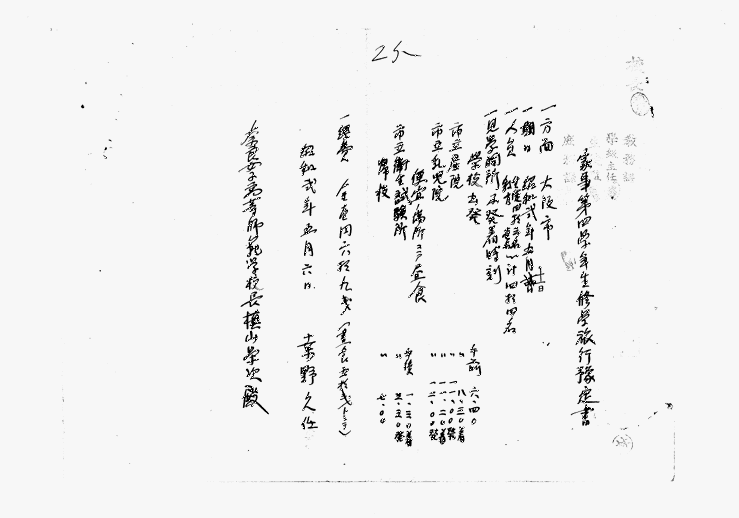 家事第四学年生修学旅行豫定書
一方面 大阪市
一期日 昭和弐年五月十二日
一人員 計四拾四名
一見学個所及発着時刻
学校出発 午前 六、四〇
市立産院 〃 八、三〇着
〃 一一、〇〇発
市立乳児院 〃 一一、二〇着
〃 一二、〇〇発
便宜ノ場所ニテ昼食
市立衛生試験所 午後 一、三〇着
〃 三、三〇発
帰校 〃 七、〇〇
一経費 金壱円六拾九銭
昭和弐年五月六日
十葉野久任
奈良女子高等師範学校長槇山栄次殿
教務課